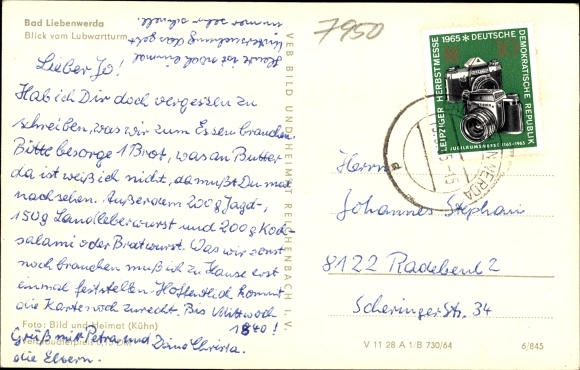 Bad Liebenwerda
Blick vom Lubwartturm
7950
Heute ist noch einmal
Untersuchung, das geht
immer sehr schnell.
Lieber Jo!
Hab ich Dir doch vergessen zu
schreiben, was wir zum Essen brauchen.
Bitte besorge 1 Brot, was an Butter
da ist weiß ich nicht, da mußt Du mal
nachsehen. Außerdem 200 g Jagd-,
150 g Landleberwurst und 200 g Koch-
salami oder Bratwurst. Was wir sonst
noch brauchen muß ich zu Hause erst
einmal feststellen. Hoffentlich kommt
die Karte noch zurecht. Bis Mittwoch
1840!
Grüß mit Petra und Deine Christa.
die Eltern.
Foto: Bild und Heimat (Kühn)
VEB BILD UND HEIMAT REICHENBACH I. V.
LEIPZIGER HERBSTMESSE 1965 DEUTSCHE DEMOKRATISCHE REPUBLIK
JUBILÄUMSMESSE 1165-1965
Herrn
Johannes Stephan
8122 Radebeul 2
Scheringer Str. 34
V 11 28 A 1/B 730/64
6/845